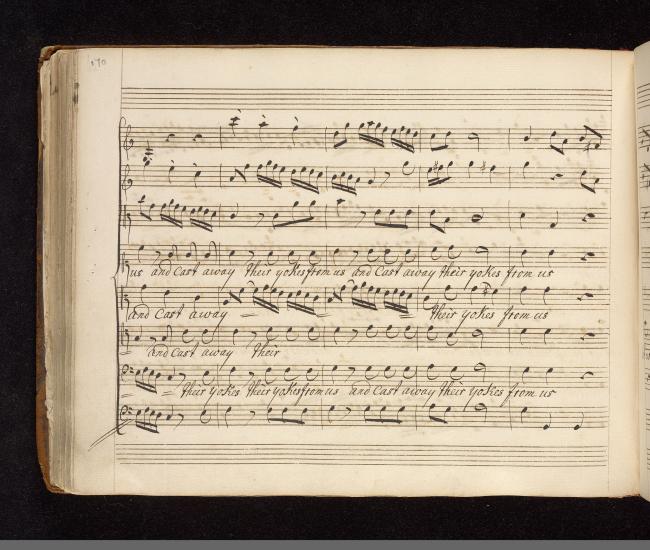 170
us and Cast away their yokes from us and Cast away their yokes from us
and Cast away their yokes from us
and Cast away their
their yokes their yokes from us and Cast away their yokes from us